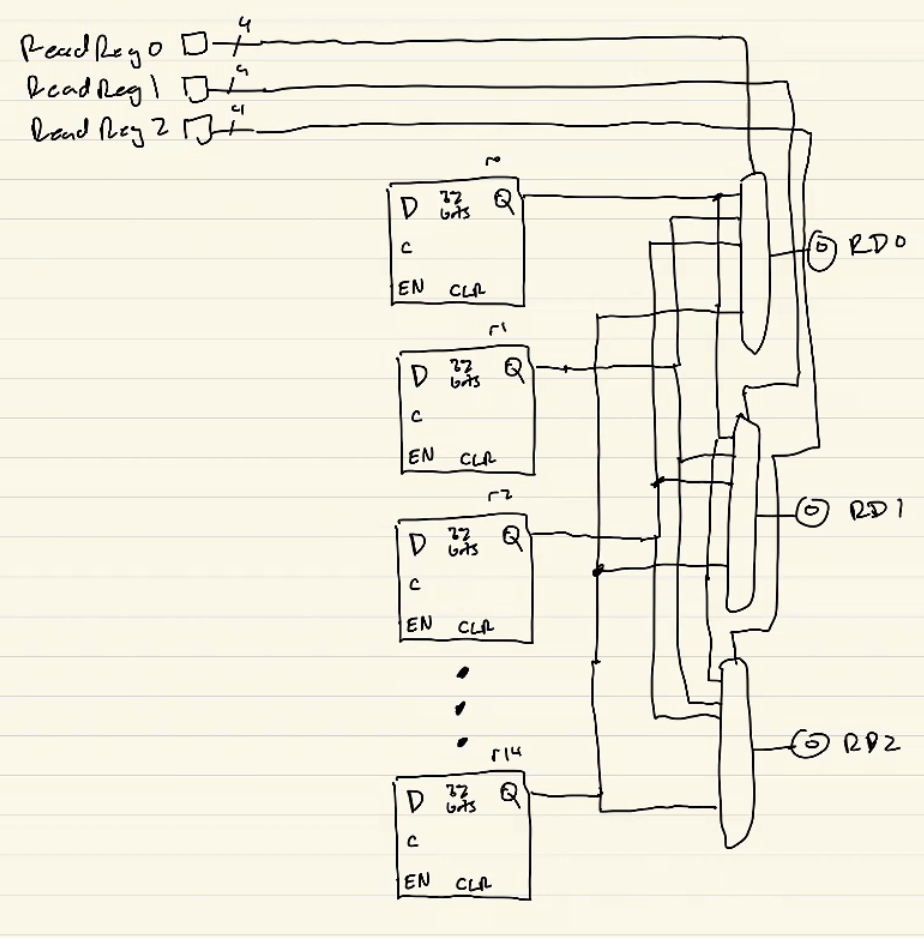 ReadReg0 4
ReadReg1 4
ReadReg2 4
r0
D 32 bits Q
C
EN CLR
RD0
r1
D 32 bits Q
C
EN CLR
r2
D 32 bits Q
C
EN CLR
RD1
r14
D 32 bits Q
C
EN CLR
RD2